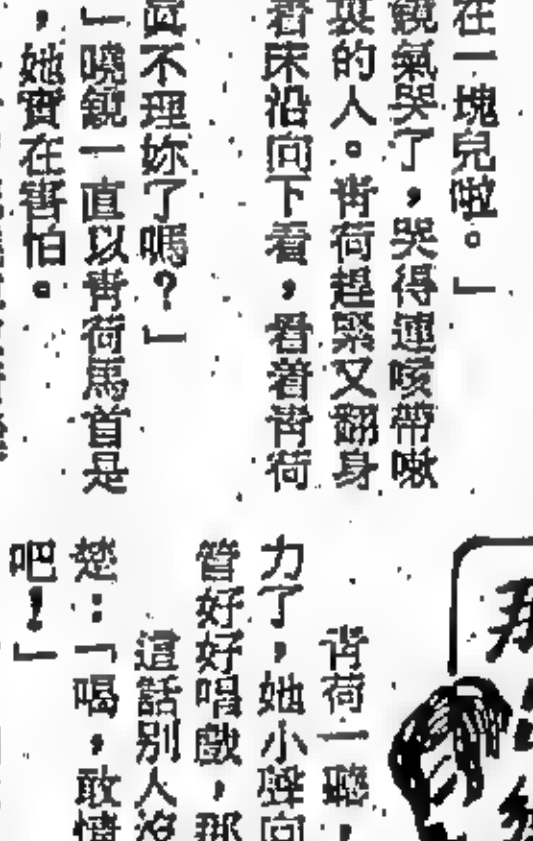 在一塊兒啦。」
饒氣哭了，哭得連咳帶嗽
裏的人。靑荷趕緊又翻身
着床沿向下看，看着靑荷
眞不理妳了嗎？」
」嘵饒一直以靑荷馬首是
，她實在害怕。
靑荷一聽，
力了，她小聲向
管好好唱戲，那
這話別人沒
楚：「喝，敢情
吧！」